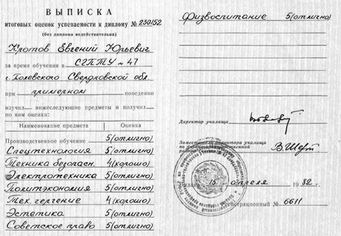 ВЫПИСКА
итоговых оценок успеваемости к диплому № 250152
(без диплома недействительна)
Кротов Евгений Юрьевич
за время обучения в СГПТУ-47
г. Полевского Свердловской обл
при примерном поведении
изучил нижеследующие предметы и получил
по ним оценки:
Наименование предмета Оценка
Производственное обучение 5(отлично)
Спецтехнология 5(отлично)
Техника безопасн. 4(хорошо)
Электротехника 5(отлично)
Политэкономия 5(отлично)
Тех. черчение 4(хорошо)
Эстетика 5(отлично)
Советское право 5(отлично)
Физвоспитание 5(отлично)
Директор училища
Заместитель директора училища
15 апреля 1982 г.
Регистрационный № 6611